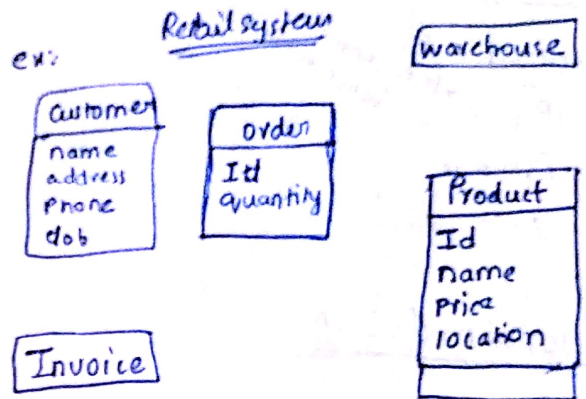 Retail system
ex:
warehouse
Customer
name
address
Phone
dob
order
Id
quantity
Product
Id
name
price
location
Invoice